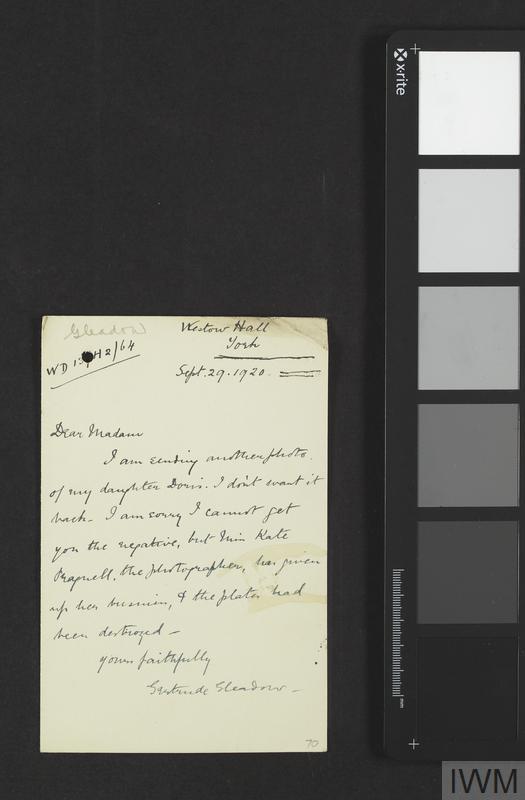 Gleadow
Westow Hall
York
WD H2/64
Sept. 29. 1920.
Dear Madam
I am sending another photo.
of my daughter Doris. I don't want it
back. I am sorry I cannot get
you the negative, but Miss Kate
Pragnell, the photographer, has given
up her business, & the plates had
been destroyed –
yours faithfully
Gertrude Gleadow –
70
x-rite
mm
IWM